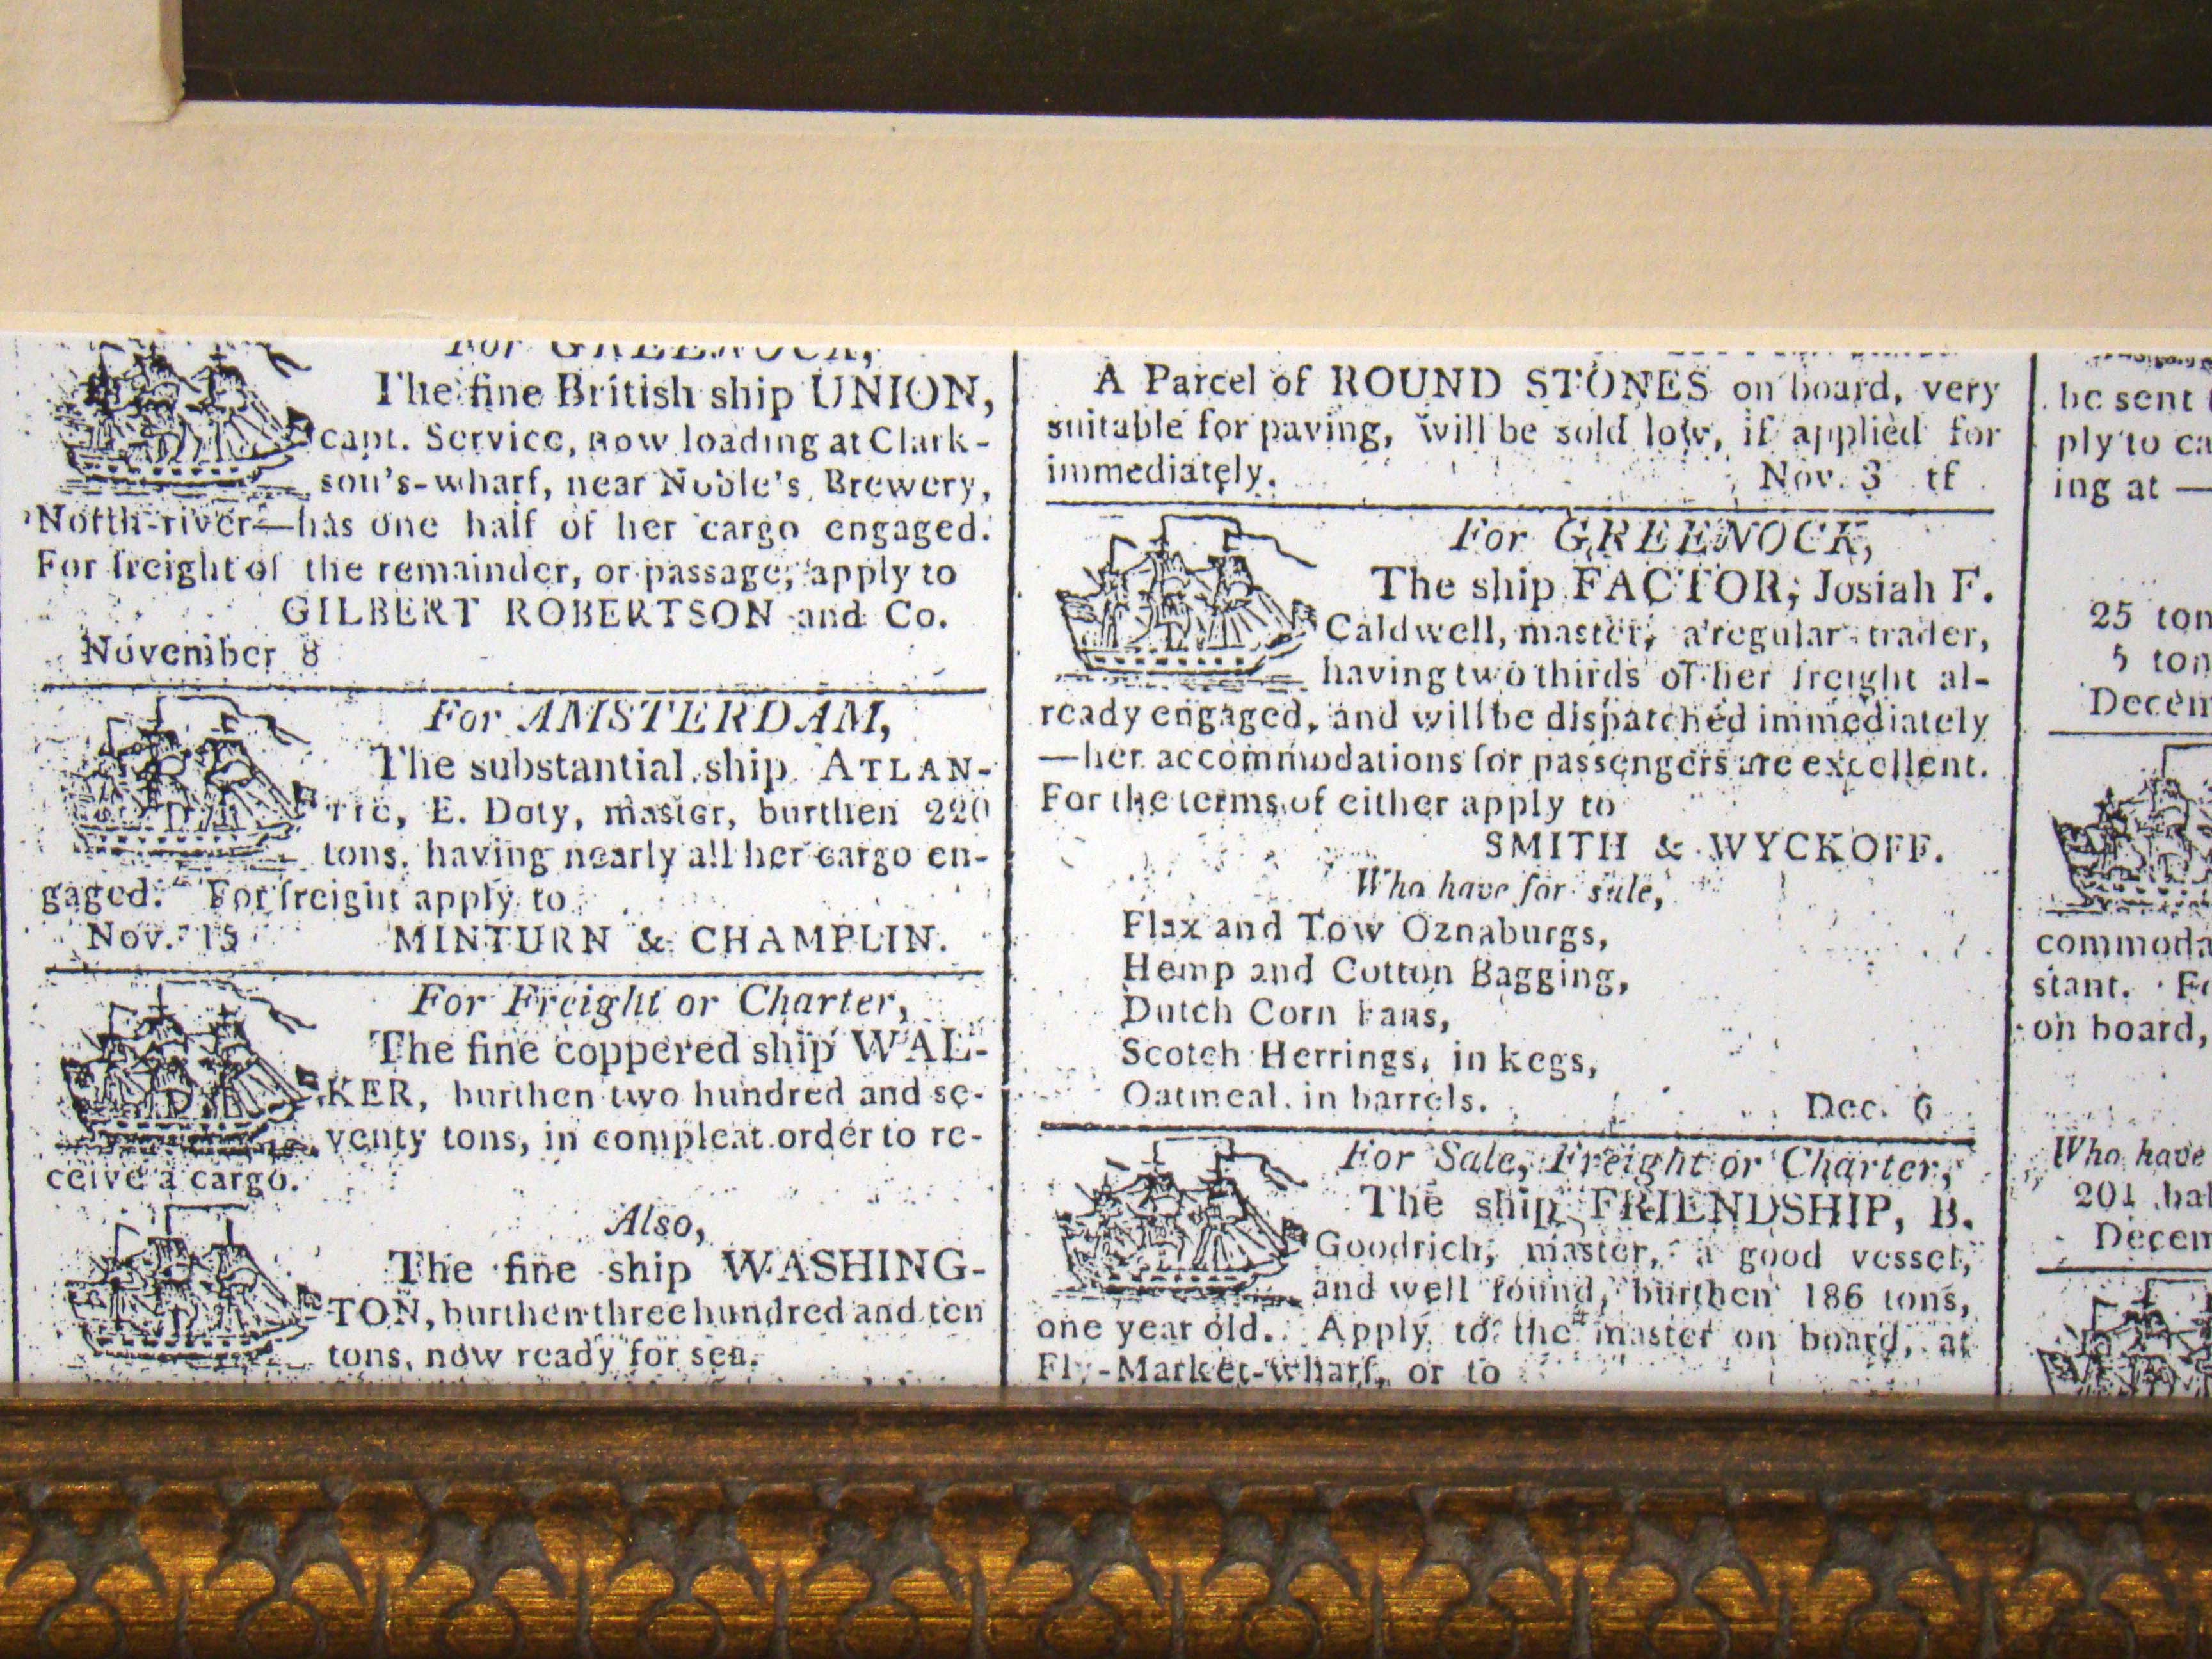 For GREENOCK,
The fine British ship UNION,
capt. Service, now loading at Clark-
son's-wharf, near Noble's Brewery,
North-river—has one half of her cargo engaged.
For freight of the remainder, or passage, apply to
GILBERT ROBERTSON and Co.
November 8
For AMSTERDAM,
The substantial ship ATLAN-
TIC, E. Doty, master, burthen 220
tons, having nearly all her cargo en-
gaged. For freight apply to
Nov. 15 MINTURN & CHAMPLIN.
For Freight or Charter,
The fine coppered ship WAL-
KER, burthen two hundred and se-
venty tons, in compleat order to re-
ceive a cargo.
Also,
The fine ship WASHING-
TON, burthen three hundred and ten
tons, now ready for sea.
A Parcel of ROUND STONES on board, very
suitable for paving, will be sold low, if applied for
immediately. Nov. 3 tf
For GREENOCK,
The ship FACTOR, Josiah F.
Caldwell, master, a regular trader,
having two thirds of her freight al-
ready engaged, and will be dispatched immediately
—her accommodations for passengers are excellent.
For the terms of either apply to
SMITH & WYCKOFF.
Who have for sale,
Flax and Tow Oznaburgs,
Hemp and Cotton Bagging,
Dutch Corn Fans,
Scotch Herrings, in kegs,
Oatmeal, in barrels. Dec. 6
For Sale, Freight or Charter,
The ship FRIENDSHIP, B.
Goodrich, master, a good vessel,
and well found, burthen 186 tons,
one year old. Apply to the master on board, at
Fly-Market-wharf, or to
be sent
ply to ca
ing at —
25 ton
5 ton
Decem
commoda
stant. Fo
on board,
Who have
201 bal
Decem